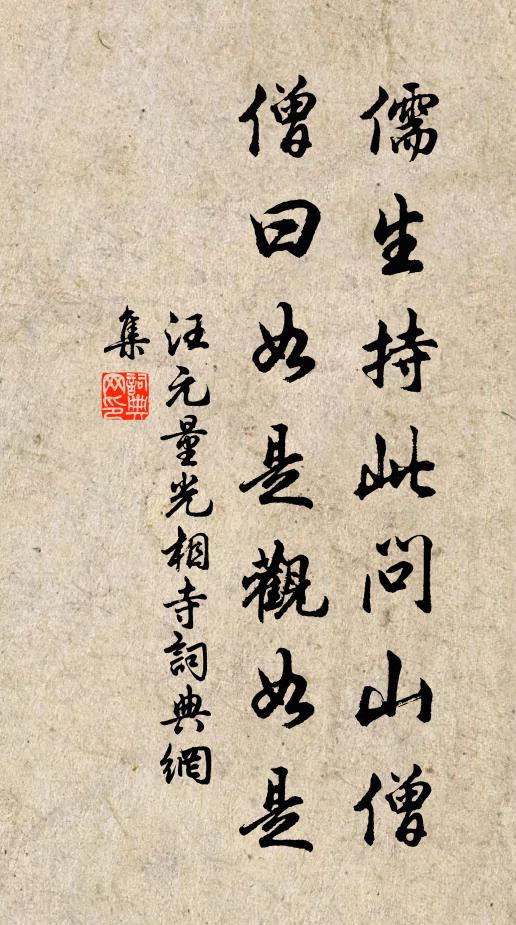 儒生持此問山僧
僧曰如是觀如是
汪元量光相寺詞典網
集
詞典
網印